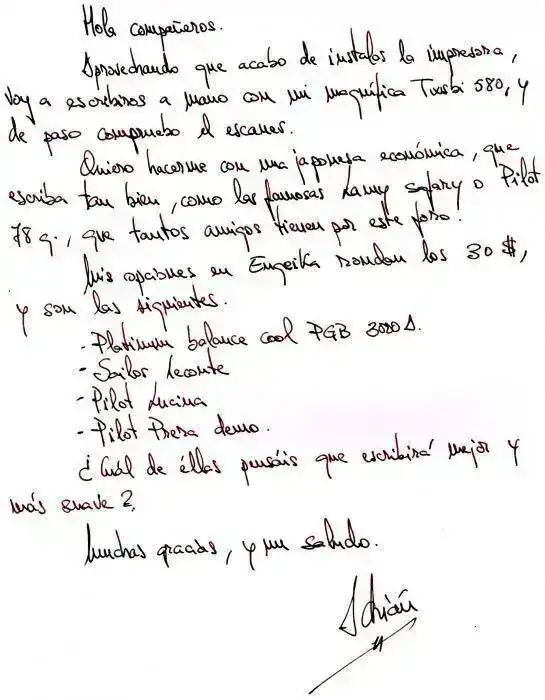 Hola compañeros.
Aprovechando que acabo de instalar la impresora,
voy a escribiros a mano con mi magnífica Twsbi 580, y
de paso compruebo el escaner.
Quiero hacerme con una japonesa económica, que
escriba tan bien, como las famosas Lamy Safary o Pilot
78 g., que tantos amigos tienen por este foro.
Mis opciones en Engeika rondan los 30 $,
y son las siguientes.
- Platinum balance cool PGB 3000A.
- Sailor Lecoule
- Pilot Lucina
- Pilot Prera demo.
¿Cuál de éllas pensáis que escribirá mejor y
más suave?
Muchas gracias, y un saludo.
Adrián